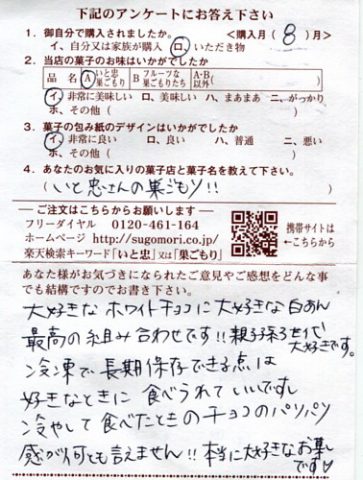 下記のアンケートにお答え下さい
1. 御自分で購入されましたか。 <購入月( 8 )月>
イ、自分又は家族が購入 ロ、いただき物
2. 当店の菓子のお味はいかがでしたか
品 名 A いと忠巣ごもり B フルーツな巣ごもりたち A・B以外( )
イ、非常に美味しい ロ、美味しい ハ、まあまあ ニ、がっかり
ホ、その他( )
3. 菓子の包み紙のデザインはいかがでしたか
イ、非常に良い ロ、良い ハ、普通 ニ、悪い
ホ、その他( )
4. あなたのお気に入りの菓子店と菓子名を教えて下さい。
(いと忠さんの巣ごもり!! )
ご注文はこちらからお願いします
フリーダイヤル 0120-461-164
ホームページ http://sugomori.co.jp/
楽天検索キーワード「いと忠」又は「巣ごもり」
携帯サイトは
←こちらから
あなた様がお気づきになられたご意見やご感想をどんな事
でも結構ですのでお書き下さい。
大好きなホワイトチョコに大好きな白あん
最高の組み合わせです!!親子孫3世代
大好きです。
冷凍で長期保存できる点は
好きなときに食べられていいですし
冷やして食べたときのチョコのパリパリ
感が何とも言えません!!本当に大好きなお菓子
です♡